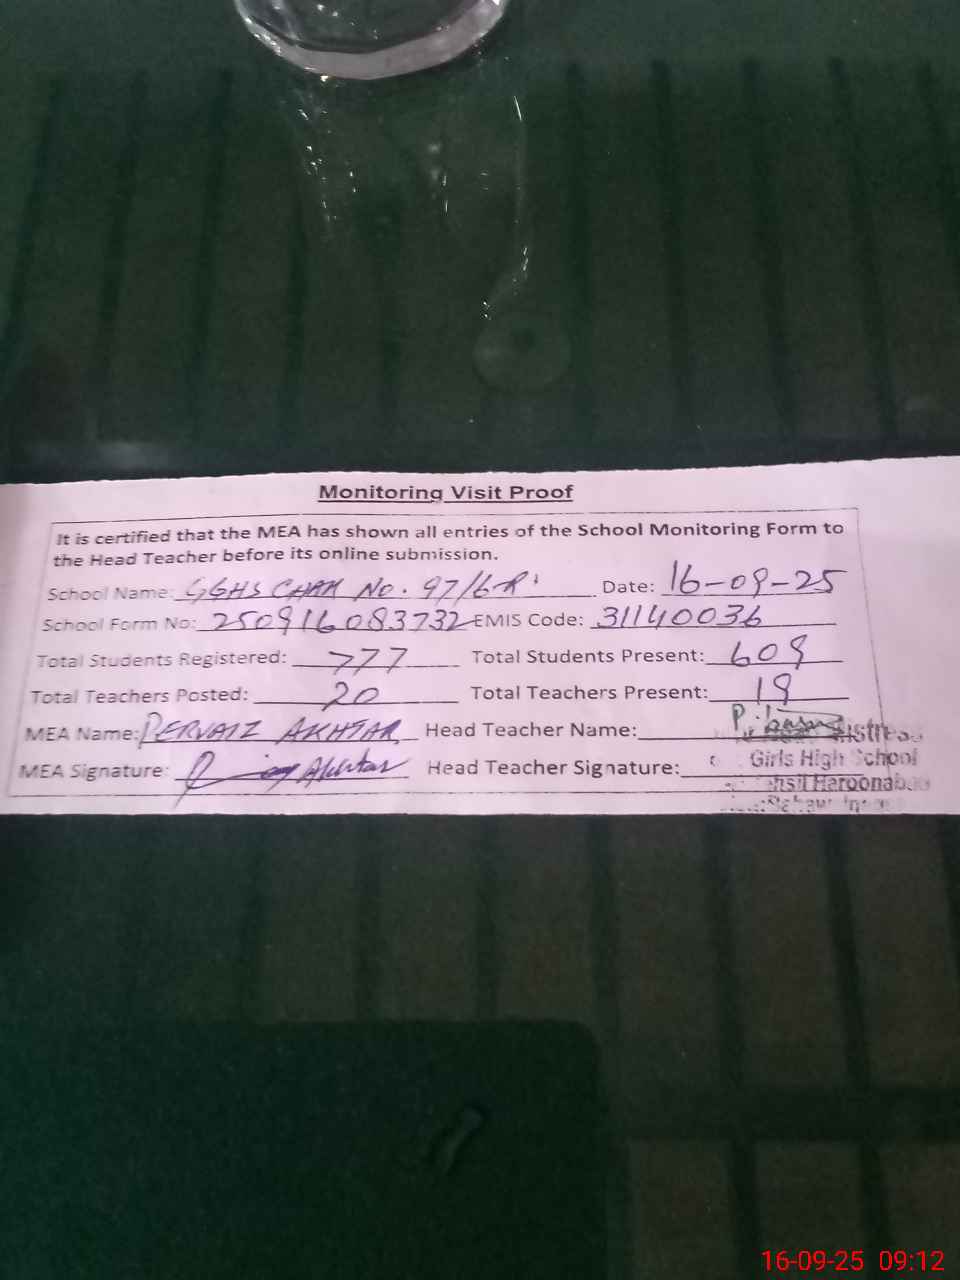 Monitoring Visit Proof
It is certified that the MEA has shown all entries of the School Monitoring Form to
the Head Teacher before its online submission.
School Name: GGHS CHAK NO. 97/6-R Date: 16-09-25
School Form No: 250916083732 EMIS Code: 31140036
Total Students Registered: 777 Total Students Present: 609
Total Teachers Posted: 20 Total Teachers Present: 19
MEA Name: PERVAIZ AKHTAR Head Teacher Name:
MEA Signature: Akhtar Head Teacher Signature:
Girls High School
Haroonabad
16-09-25 09:12